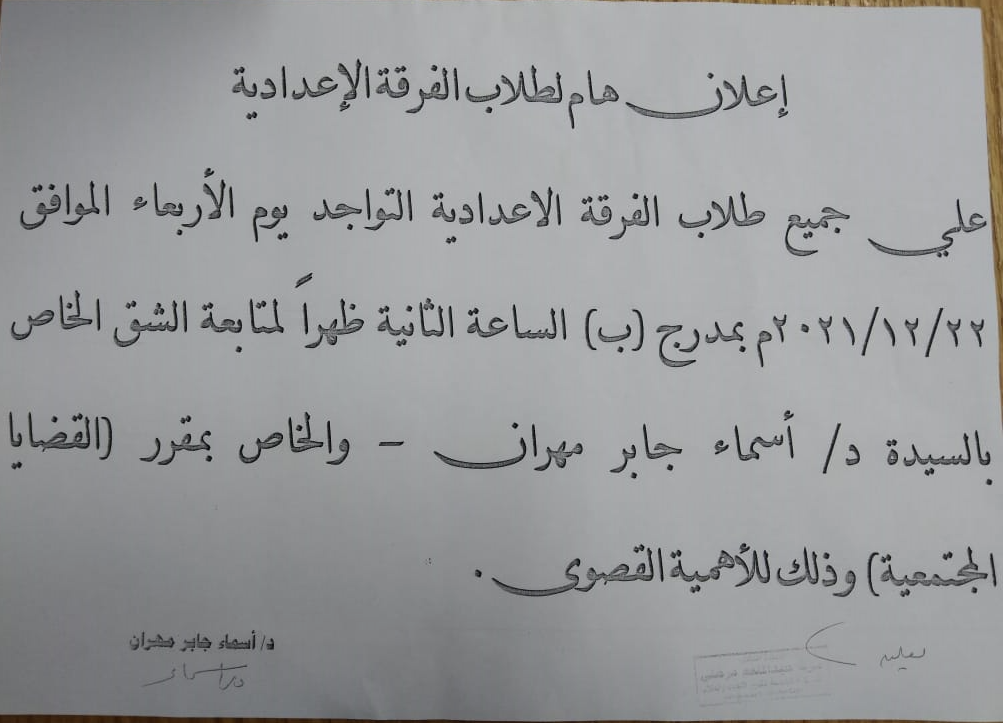 إعلان هام لطلاب الفرقة الإعدادية
علي جميع طلاب الفرقة الاعدادية التواجد يوم الأربعاء الموافق
٢٠٢١/١٢/٢٢م بمدرج (ب) الساعة الثانية ظهراً لمتابعة الشق الخاص
بالسيدة د/ أسماء جابر مهران - والخاص بمقرر (القضايا
المجتمعية) وذلك للأهمية القصوى .
د/ أسماء جابر مهران